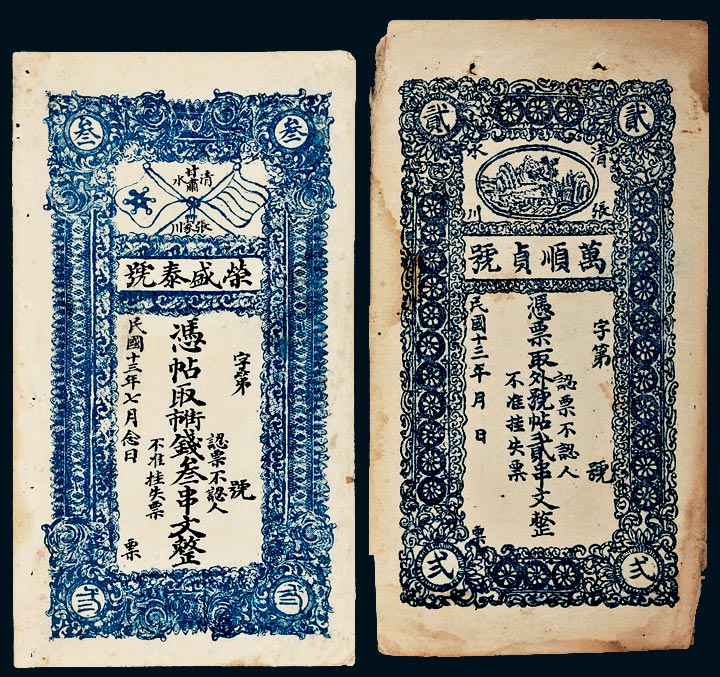 叁
叁
甘肅
清水
張家川
榮盛泰號
字第 號
認票不認人
不准挂失票
憑帖取街市錢叁串文整
民國十三年七月念日 票
弎
弎
貳
貳
清水
張川
萬順貞號
字第 號
認票不認人
不准挂失票
憑票取外號帖貳串文整
民國十三年 月 日 票
弍
弍